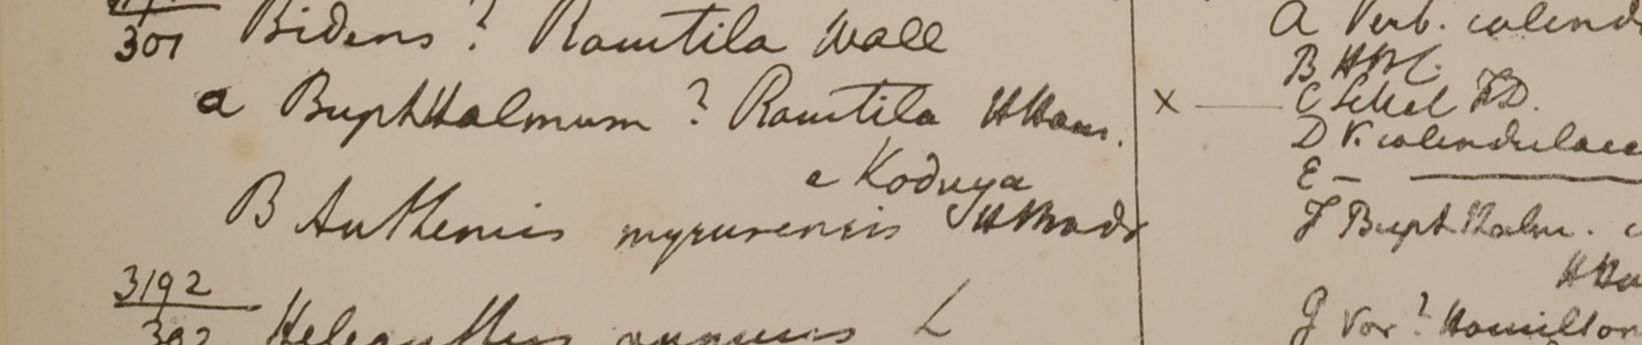 301 Bidens? Ramtila Wall
a Buphthalmum? Ramtila HHam.
e Koduya
B Anthemis mysurensis HMadr
3192
302 Helianthus annuus L
A Verb. calend
B HBC.
× C Schel HD.
D V. calendulace
E —
F Buphthalm. c
HHa
G Var? Hamilton